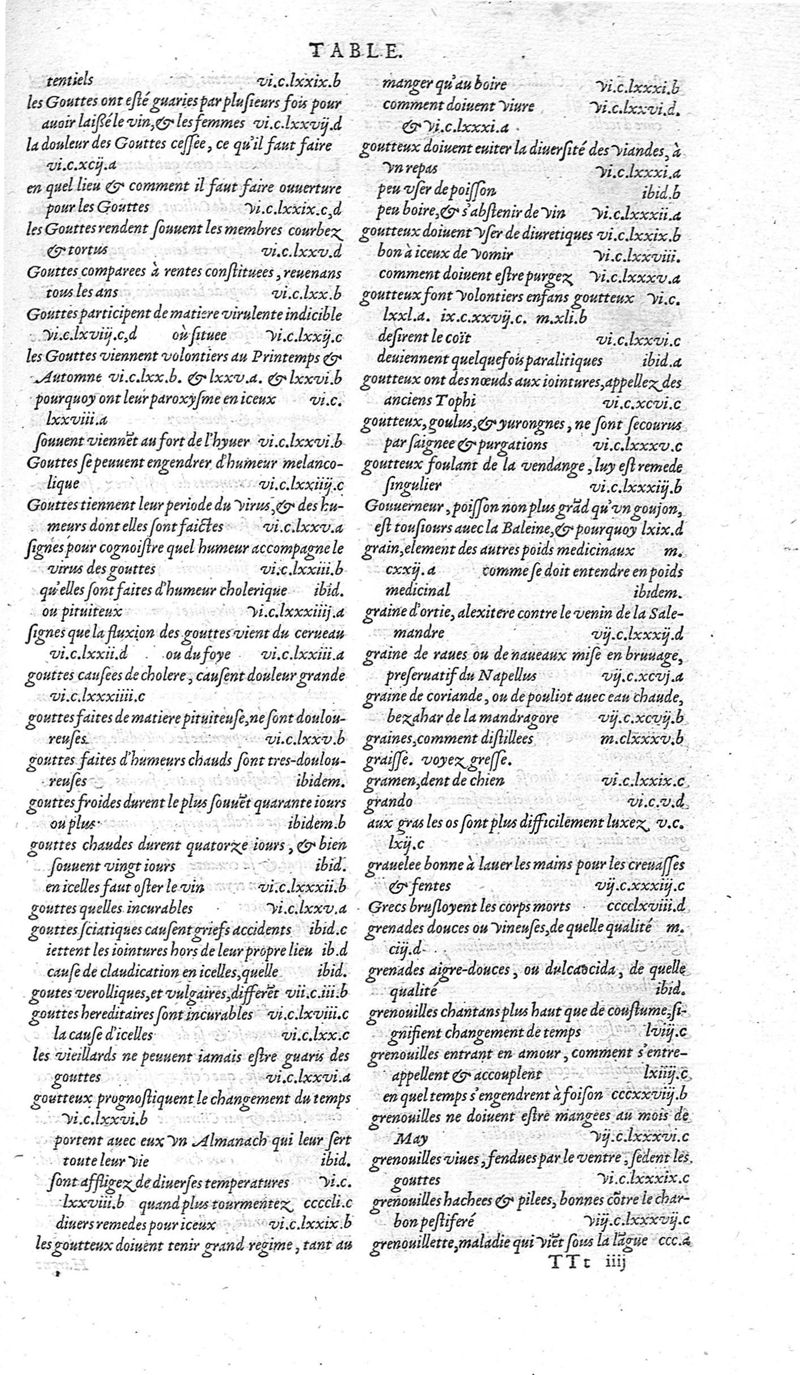 TABLE.
tentiels vi.c.lxxix.b
les Gouttes ont esté guaries par plusieurs fois pour
auoir laißé le vin, & les femmes vi.c.lxxvij.d
la douleur des Gouttes cessée, ce qu'il faut faire
vi.c.xcij.a
en quel lieu & comment il faut faire ouuerture
pour les Gouttes vi.c.lxxix.c,d
les Gouttes rendent souuent les membres courbez
& tortus vi.c.lxxv.d
Gouttes comparees à rentes constituees, reuenans
tous les ans vi.c.lxx.b
Gouttes participent de matiere virulente indicible
vi.c.lxviij.c,d où situee vi.c.lxxij.c
les Gouttes viennent volontiers au Printemps &
Automne vi.c.lxx.b. & lxxv.a. & lxxvi.b
pourquoy ont leur paroxysme en iceux vi.c.
lxxviii.a
souuent viennēt au fort de l'hyuer vi.c.lxxvi.b
Gouttes se peuuent engendrer d'humeur melanco-
lique vi.c.lxxiiij.c
Gouttes tiennent leur periode du virus, & des hu-
meurs dont elles sont faictes vi.c.lxxv.a
signes pour cognoistre quel humeur accompagne le
virus des gouttes vi.c.lxxiii.b
qu'elles sont faites d'humeur cholerique ibid.
ou pituiteux vi.c.lxxxiiij.a
signes que la fluxion des gouttes vient du cerueau
vi.c.lxxii.d ou du foye vi.c.lxxiii.a
gouttes causees de cholere, causent douleur grande
vi.c.lxxxiiii.c
gouttes faites de matiere pituiteuse, ne sont doulou-
reuses vi.c.lxxv.b
gouttes faites d'humeurs chauds sont tres-doulou-
reuses ibidem.
gouttes froides durent le plus souuēt quarante iours
ou plus ibidem.b
gouttes chaudes durent quatorze iours, & bien
souuent vingt iours ibid.
en icelles faut oster le vin vi.c.lxxxii.b
gouttes quelles incurables vi.c.lxxv.a
gouttes sciatiques causent griefs accidents ibid.c
iettent les iointures hors de leur propre lieu ib.d
cause de claudication en icelles, quelle ibid.
goutes verolliques, et vulgaires, differēt vii.c.iii.b
gouttes hereditaires sont incurables vi.c.lxviii.c
la cause d'icelles vi.c.lxx.c
les vieillards ne peuuent iamais estre guaris des
gouttes vi.c.lxxvi.a
goutteux prognostiquent le changement du temps
vi.c.lxxvi.b
portent auec eux vn Almanach qui leur sert
toute leur vie ibid.
sont affligez de diuerses temperatures vi.c.
lxxviii.b quand plus tourmentez ccccli.c
diuers remedes pour iceux vi.c.lxxix.b
les goutteux doiuent tenir grand regime, tant au
manger qu'au boire vi.c.lxxxi.b
comment doiuent viure vi.c.lxxvi.d.
& vi.c.lxxxi.a
goutteux doiuent euiter la diuersité des viandes, à
vn repas vi.c.lxxxi.a
peu vser de poisson ibid.b
peu boire, & s'abstenir de vin vi.c.lxxxii.a
goutteux doiuent vser de diuretiques vi.c.lxxix.b
bon à iceux de vomir vi.c.lxxviii.
comment doiuent estre purgez vi.c.lxxxv.a
goutteux font volontiers enfans goutteux vi.c.
lxxl.a. ix.c.xxvij.c. m.xli.b
desirent le coït vi.c.lxxvi.c
deuiennent quelquefois paralitiques ibid.a
goutteux ont des nœuds aux iointures, appellez des
anciens Tophi vi.c.xcvi.c
goutteux, goulus, & yurongnes, ne sont secourus
par saignee & purgations vi.c.lxxxv.c
goutteux foulant de la vendange, luy est remede
singulier vi.c.lxxxiij.b
Gouuerneur, poisson non plus grād qu'vn goujon,
est tousiours auec la Baleine, & pourquoy lxix.d
grain, element des autres poids medicinaux m.
cxxij.a comme se doit entendre en poids
medicinal ibidem.
graine d'ortie, alexitere contre le venin de la Sale-
mandre vij.c.lxxxij.d
graine de raues ou de naueaux mise en bruuage,
preseruatif du Napellus vij.c.xcvj.a
graine de coriande, ou de pouliot auec eau chaude,
bezahar de la mandragore vij.c.xcvij.b
graines, comment distillees m.clxxxv.b
graisse. voyez gresse.
gramen, dent de chien vi.c.lxxix.c
grando vi.c.v.d
aux gras les os sont plus difficilement luxez v.c.
lxij.c
grauelee bonne à lauer les mains pour les creuasses
& fentes vij.c.xxxiij.c
Grecs brusloyent les corps morts cccclxviii.d
grenades douces ou vineuses, de quelle qualité m.
ciij.d
grenades aigre-douces, ou dulcacida, de quelle
qualité ibid.
grenouilles chantans plus haut que de coustume, si-
gnifient changement de temps lviij.c
grenouilles entrant en amour, comment s'entre-
appellent & accouplent lxiiij.c
en quel temps s'engendrent à foison cccxxviij.b
grenouilles ne doiuent estre mangees au mois de
May vij.c.lxxxvi.c
grenouilles viues, fendues par le ventre, sedent les
gouttes vi.c.lxxxix.c
grenouilles hachees & pilees, bonnes cōtre le char-
bon pestiferé viij.c.lxxxvij.c
grenouillette, maladie qui viēt sous la lāgue ccc.a
TTt iiij